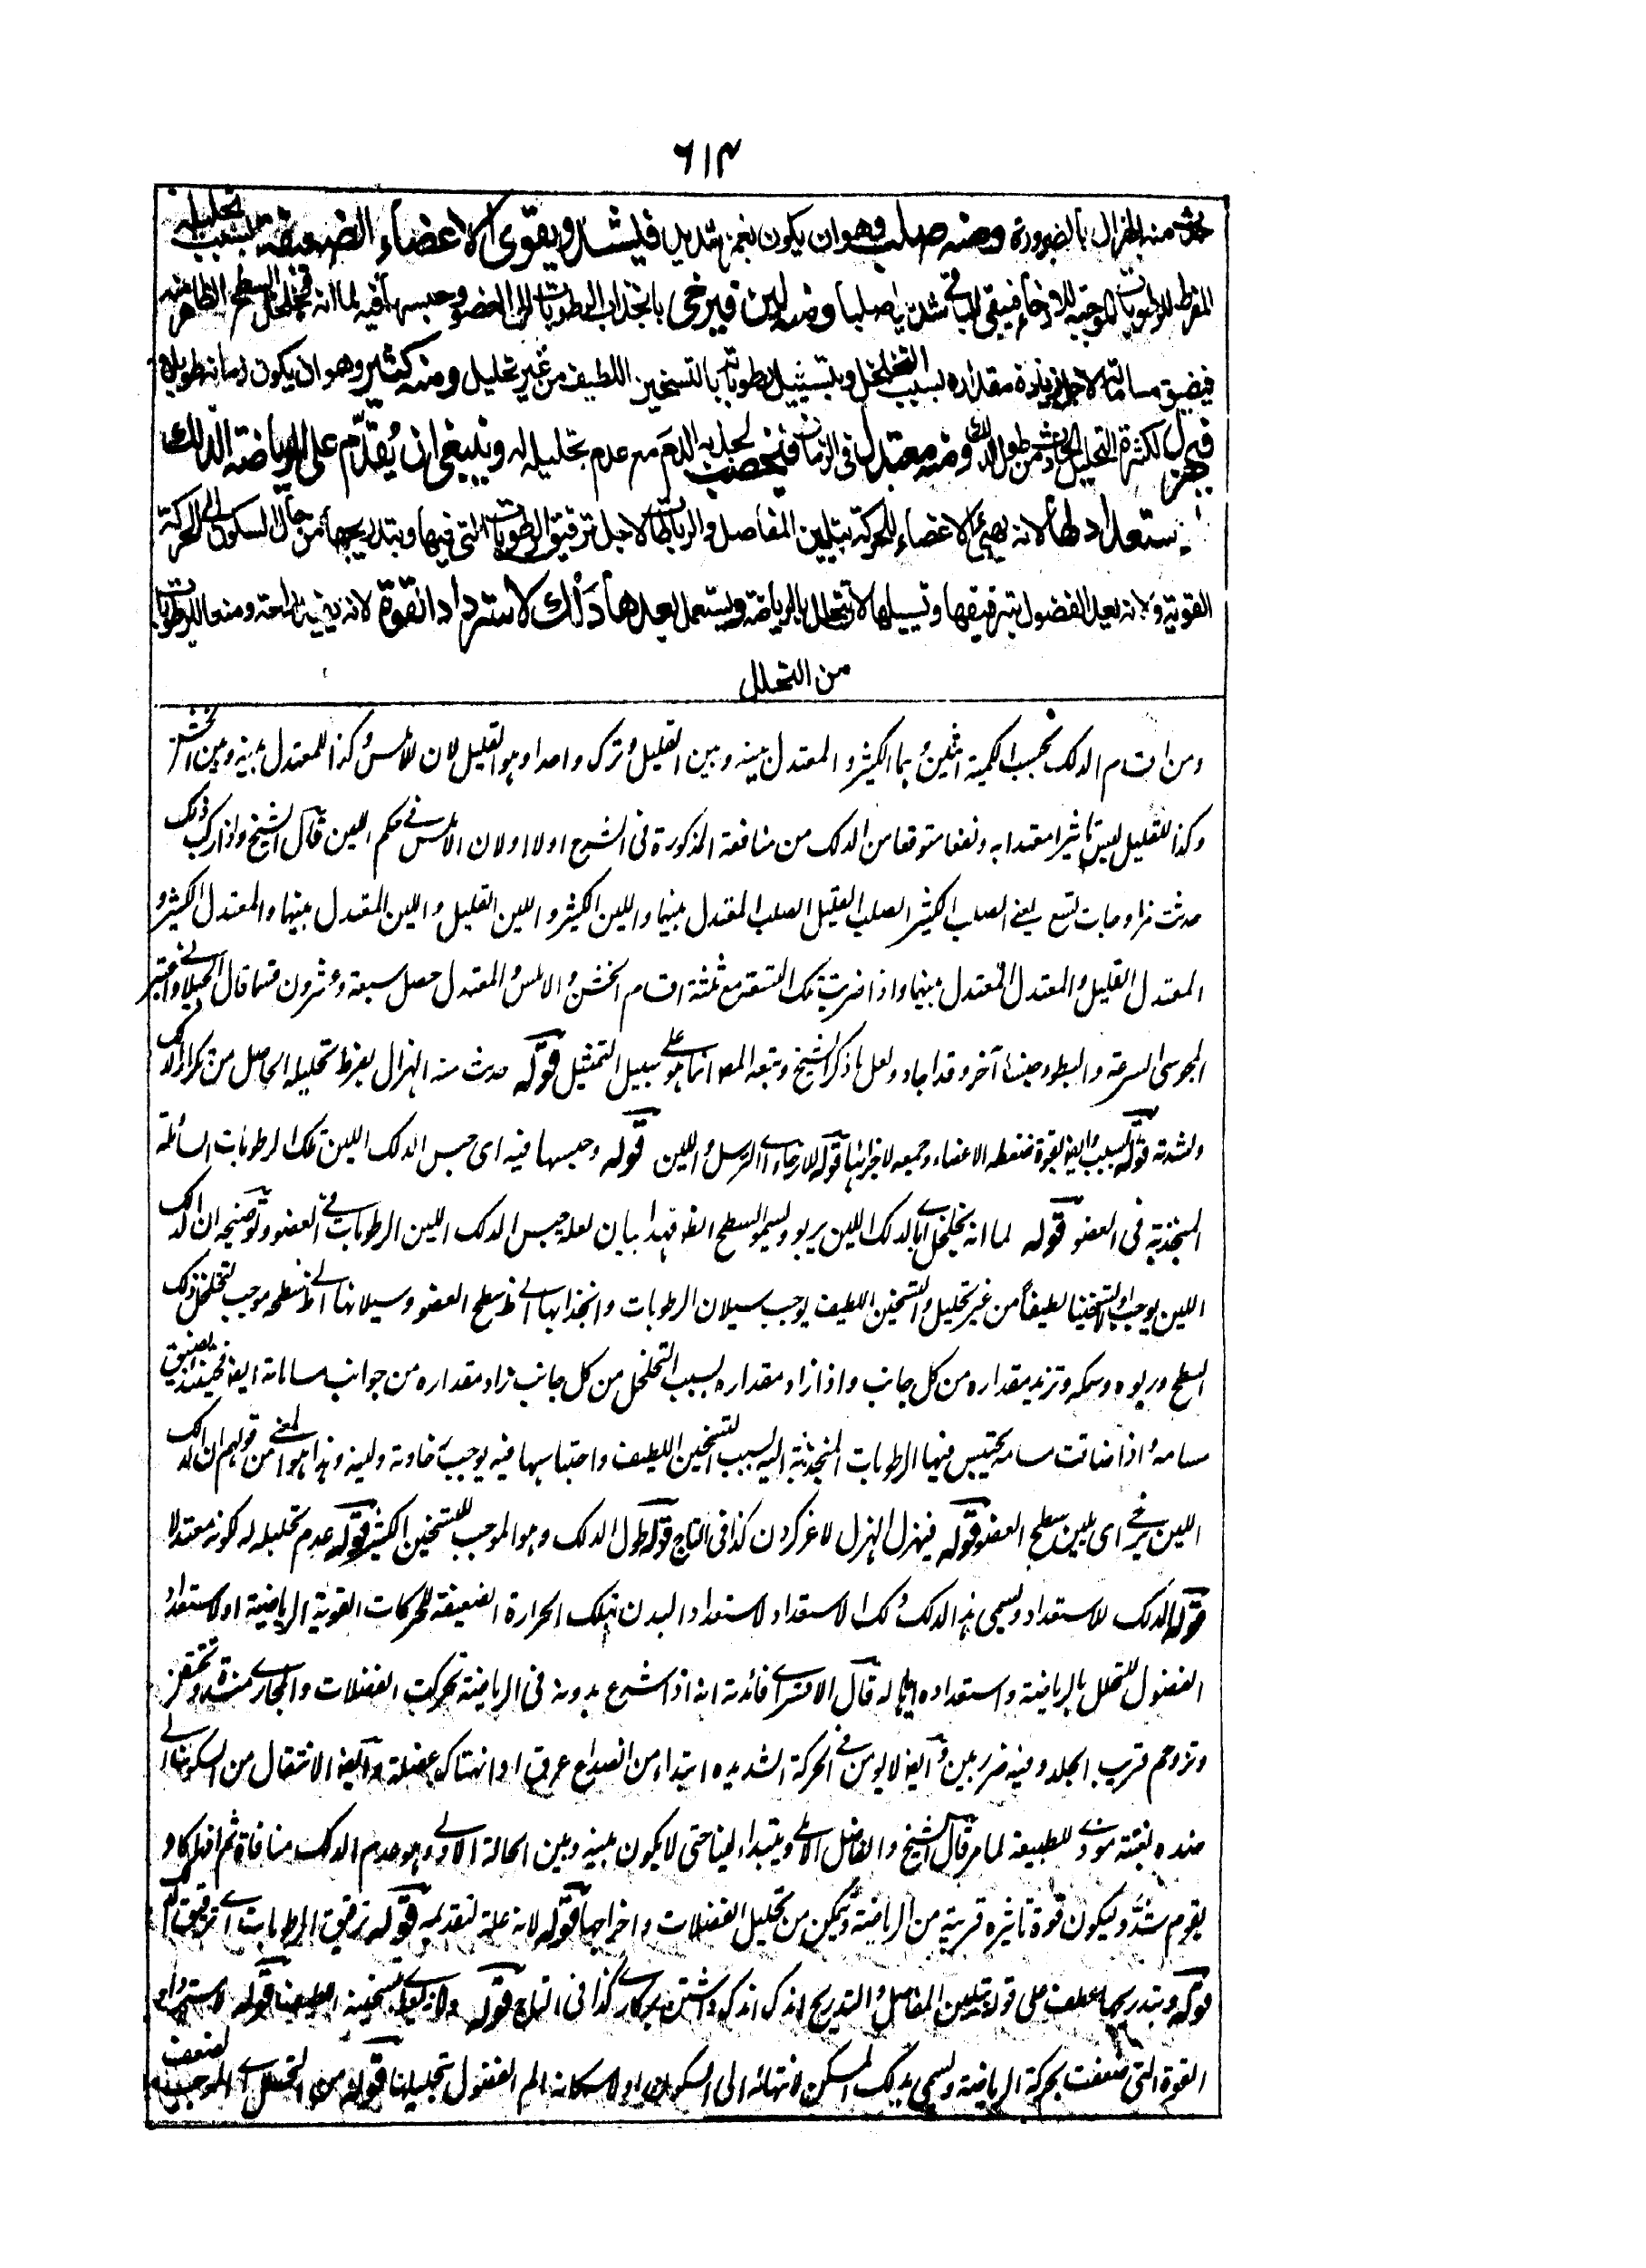 ٦١٤
حدث منه الهزال بالضرورة ومنه صلب وهو ان يكون بغمز شديد فيشد ويقوى الاعضاء الضعيفة بسبب تحليله
المفرط للرطوبات الموجبة للارخاء فيبقى الباقي شديدا صلبا ومنه لين فيرخى بانجذاب الرطوبات الى العضو وحبسها فيه لما انه يتخلخل السطح الظاهر منه
فيضيق مساماته لاجل زيادة مقداره بسبب التخلخل وبتسييل رطوباته بالتسخين اللطيف من غير تحليل ومنه كثير وهو ان يكون زمانه طويلا
فيهزل لكثرة التحليل الحادث من طول الدلك ومنه معتدل في الزمان فيخصب لجذبه الدم مع عدم تحليله له وينبغى ان يُقدّم على الرياضة الدلك
ستعدادلها لانه يهيئ الاعضاء للحركة بتليين المفاصل والرباطات لاجل ترقيق الرطوبات التى فيها وبتدريجها من حال السكون الى الحركة
القوية ولانه يعد الفضول بترقيقها وتسييلها لان يتحلل بالرياضة ويستعمل بعدها دَلك لاسترداد القوة لانه يفيد راحة ومنعا للرطوبات
من التحلل
ومن اقسام الدلك بحسب الكمية اثنين وهما الكثير والمعتدل بينه وبين القليل وترك واحدا وهو القليل لان للاملس وكذا للمعتدل بينه وبين الخشن
وكذا للقليل ليس تاثيرا معتدا به ونفعا متوقعا من الدلك من منافعه المذكورة فى الشرح اولا اولان الاملس فى حكم اللين قال الشيخ واذا ركب ذلك
حدثت مزاوجات تسع يعنى الصلب الكثير الصلب القليل الصلب المعتدل بينهما واللين الكثير واللين القليل واللين المعتدل بينهما والمعتدل الكثير و
المعتدل القليل والمعتدل المعتدل بينهما واذا ضربت تلك التسعة مع ثلثة اقسام الخشن والاملس والمعتدل حصل سبعة وعشرون قسما قال الجيلانى واعتبر
المجوسى السرعة والبطوء جنسا آخر وقد اجاد ولعل ما ذكره الشيخ وتبعه المص انما هو على سبيل التمثيل قوله حدث منه الهزال بفرط تحليله الحاصل من تكرار الدلك
ولشدته قوله بسبب والغمز بقوة ضغطه الاعضاء وجمعه لاجزائها قوله للارخاء اى الترهل واللين قوله وحبسها فيه اى حبس الدلك اللين تلك الرطوبات السائلة
المنجذبة فى العضو قوله لما انه يتخلخل اى بالدلك اللين يربو ويسمو السطح الظ فهذا بيان لعلة حبس الدلك اللين الرطوبات فى العضو وتوضيحه ان الدلك
اللين يوجب اولا تسخينا لطيفا من غير تحليل والتسخين اللطيف يوجب سيلان الرطوبات وانجذابها الى ظ سطح العضو وسيلانها الى ظ سطحه موجب لتخلخل ذلك
السطح وربوه وسمكه وتزيد مقداره من كل جانب واذا زاد مقداره بسبب التخلخل من كل جانب زاد مقداره من جوانب مساماته ايضا فحينئذ يضيق
مسامه واذا ضاقت مسامه يحتبس فيها الرطوبات المنجذبة اليه بسبب التسخين اللطيف واحتباسها فيه يوجب رخاوته ولينه وهذا هو المعنى من قولهم ان الدلك
اللين يرخى اى يلين سطح العضو قوله فيهزل الهزل لاغر كردن كذا فى التاج قوله طول الدلك وهو الموجب للتسخين الكثير قوله عدم تحليله له لكونه معتدلا
قوله الدلك للاستعداد ويسمى هذا الدلك دلك الاستعداد لاستعداد البدن بتلك الحرارة الضعيفة للحركات القوية الرياضية او لاستعداد
الفضول للتحلل بالرياضة واستعداده اياها له قال الاقسرائى فائدته انه اذا شرع بدونه فى الرياضة تحركت الفضلات والمجارى منسدة وتحتقن
وتزدحم قريب الجلد وفيه ضرر بين وايضا لا يومن فى الحركة الشديدة ابتداء من انصداع عرق او انهتاك عضلة وايضا الانتقال من السكون الى
ضده بغتة مؤذ للطبيعة لما مر قال الشيخ والفاضل الآملى ويبتدا لينا حتى لا يكون بينه وبين الحالة الاولى وهو عدم الدلك منافاة ثم اذا كاد
يقوم شدد وليكون قوة تاثيره قريبة من الرياضة وتمكن من تحليل الفضلات واخراجها قوله لانه علة لتقديمه قوله ترقيق الرطوبات اى ترقيق الدلك
قوله وبتدريجها عطف على قوله بتليين المفاصل والتدريج اندك اندك داشتن بر كارى كذا فى التاج قوله ولانه يعد اى بتسخينه اللطيف قوله لاسترداد
القوة التى ضعفت بحركة الرياضة ويسمى بدلك المسكن لانتهائه الى السكون او لاسكانه الم الفضول بتحليلها قوله من التحلل الموجب لضعف